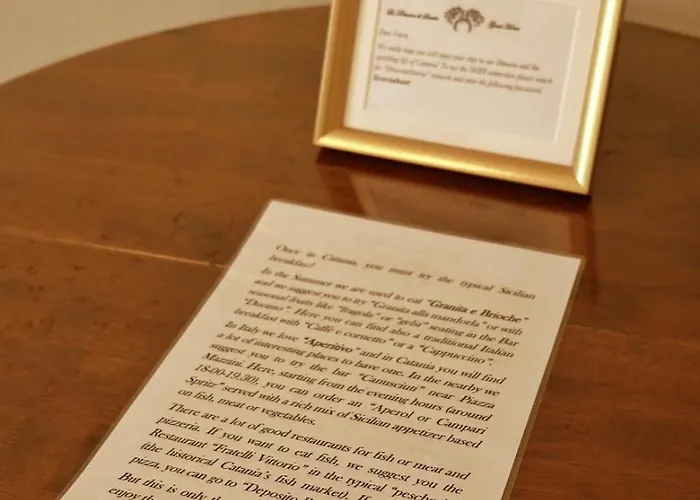 Guest House
Dear Guest,
We really hope you will enjoy your stay in our Dimora and the
of Catania! To use the WIFI connection please search
the network and enter the following password:
Once in Catania, you must try the typical Sicilian
breakfast!
In the Summer we are used to eat "Granita e Brioche"
and we suggest you to try "Granita alla mandorla" or with
seasonal fruits like "fragola" or "gelsi" seating in the Bar
"Duomo". Here you can find also a traditional Italian
breakfast with "Caffè e cornetto" or a "Cappuccino".
In Italy we love "Aperitivo" and in Catania you will find
a lot of interesting places to have one. In the nearby we
suggest you to try the bar "Canusciuti" near Piazza
Mazzini. Here, starting from the evening hours (around
18:00-19:30), you can order an "Aperol or Campari
Spritz" served with a rich mix of Sicilian appetizer based
on fish, meat or vegetables.
There are a lot of good restaurants for fish or meat and
pizzeria. If you want to eat fish, we suggest you the
Restaurant "Fratelli Vittorio" in the typical
(the historical Catania's fish market). If
pizza, you can go to "Deposito
But this is only th
enjoy the